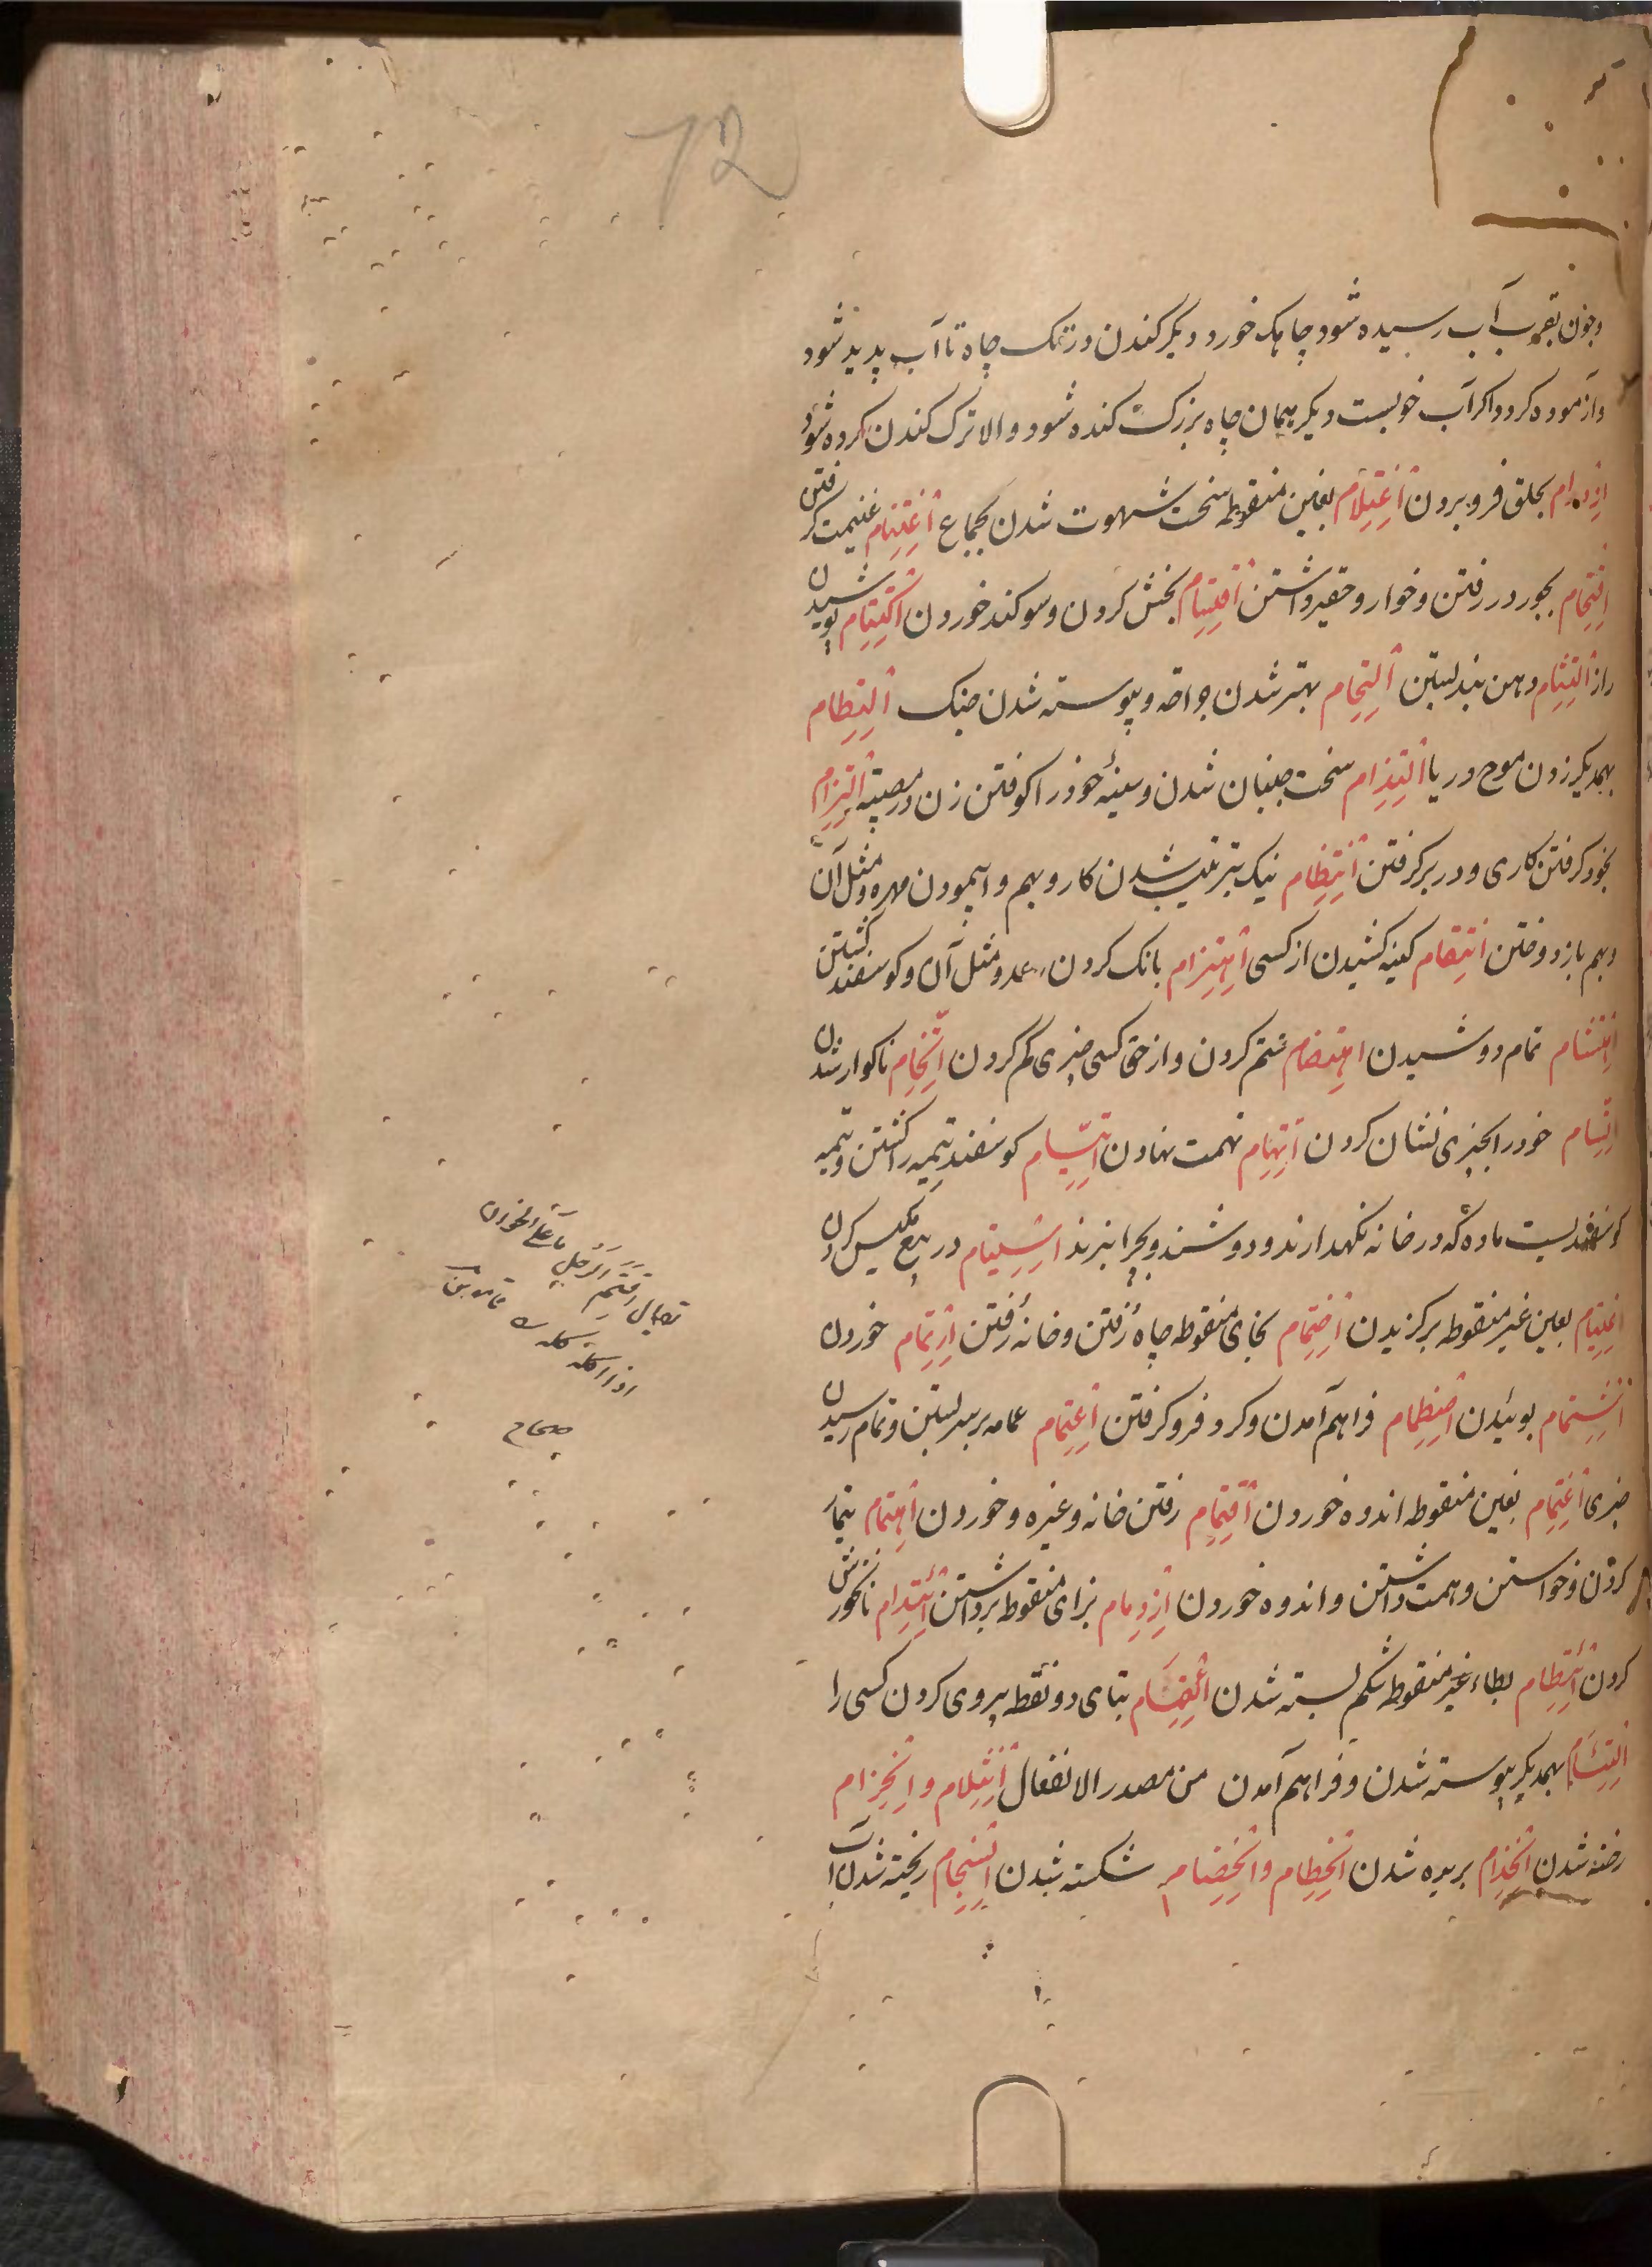 72
وچون بقرب آب رسیده شود چاهک خورد دیگر کندن در تک چاه تا آب پدید شود
وآزموده کردد اکر آب خوبست دیگر بهمان چاه بزرک کنده شود والا ترک کندن کرده شود
اِزدِرام بحلق فرو بردن اِغتِلام بغین منقوطه سخت شهوت شدن بجماع اِغتِنام غنیمت کرفتن
اِقتِحام بجور در رفتن وخوار وحقیر داشتن اِقتِسام بخش کردن وسوکند خوردن اِکتِتام پوشیدن
راز اِلتِثام دهن بند بستن اِلتِحام بهتر شدن جراحه وپیوسته شدن جنک اِلتِطام
بهمدیکر زدن موج دریا اِلتِذام سخت جنبان شدن وسینهٔ خود را کوفتن زن در مصیبته اِلتِزام
بخود کرفتن کاری ودر بر کرفتن اِنتِظام نیک بترتیب شدن کار وبهم وا پیمودن مهره ومثل آن
وبهم باز دوختن اِنتِقام کینه کشیدن از کسی اِهتِزام بانک کردن رعد ومثل آن وکوسفند کشتن
اِهتِشام تمام دوشیدن اِهتِضام ستم کردن واز حق کسی چیزی کم کردن اِتِّخام ناکوار شدن
اِتِّسام خود را بچیزی نشان کردن اِتِّهام تهمت نهادن اِتِّیام کوسفند تیمه را کشتن وتیمه
کوسفندیست ماده که در خانه نکهدارند ودوشند وبچرا نبرند اِستِیام در بیع مکیس کردن
اِعتِیام بعین غیر منقوطه برکزیدن اِختِمام بخای منقوطه چاه رُفتن وخانه رُفتن اِرتِمام خوردن
اِشتِمام بوئیدن اِضطِمام فراهم آمدن وکرد فرو کرفتن اِعتِمام عمامه بر سر بستن وتمام رسیدن
چیزی اِغتِمام بغین منقوطه اندوه خوردن اِقتِمام رفتن خانه وغیره وخوردن اِهتِمام تیمار
کردن وخواستن وهمت داشتن واندوه خوردن اِزدِمام بزای منقوطه برداشتن اِئتِدام نانخورش
کردن اِئتِطام بطاء غیر منقوطه شکم بسته شدن اِئتِمام بتای دو نقطه پیروی کردن کسی را
اِلتِئام بهمدیکر پیوسته شدن وفراهم آمدن من مصدر الانفعال اِنثِلام واِنخِزام
رخنه شدن اِنجِذام بریده شدن اِنحِطام واِنخِضام شکسته شدن اِنسِجام ریخته شدن آب
یقال اقتم الرجل ما علی الخوان
اذا اکله کله
صحاح